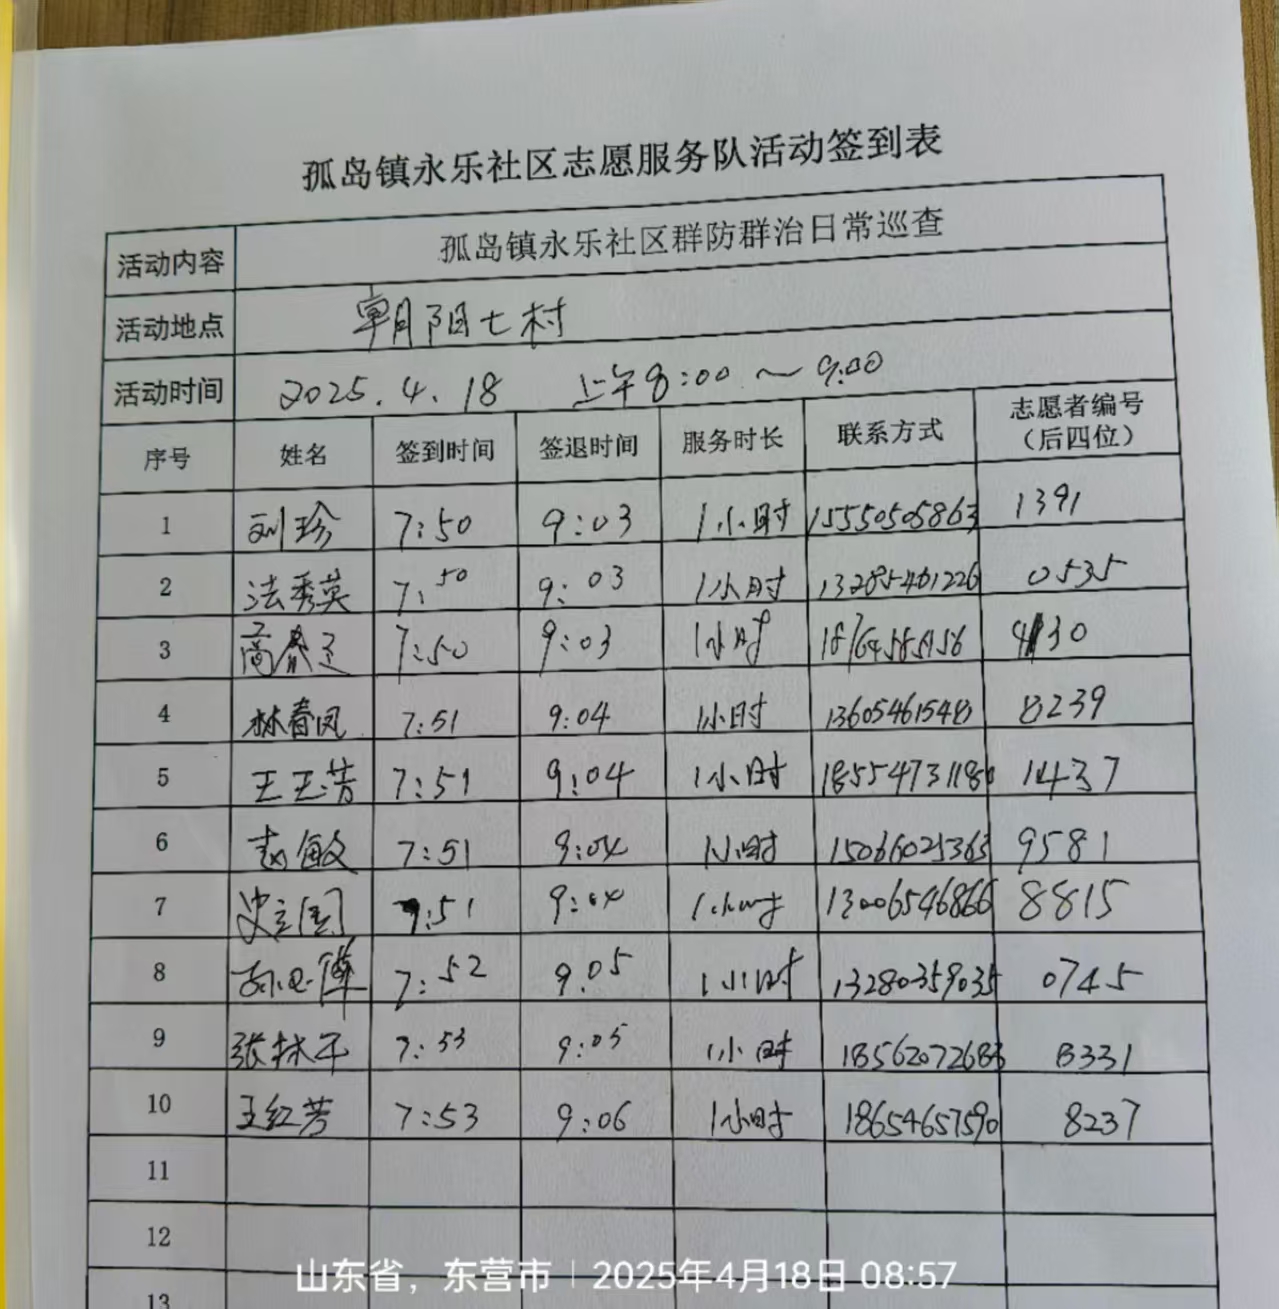 孤岛镇永乐社区志愿服务队活动签到表
活动内容 孤岛镇永乐社区群防群治日常巡查
活动地点 朝阳七村
活动时间 2025.4.18 上午8:00～9:00
序号 姓名 签到时间 签退时间 服务时长 联系方式 志愿者编号（后四位）
1 刘珍 7:50 9:03 1小时 15550505863 1391
2 法秀英 7:50 9:03 1小时 13285461226 0535
3 7:50 9:03 1小时
4 林春凤 7:51 9:04 1小时 8239
5 王玉芳 7:51 9:04 1小时 18554731180 1437
6 赵敏 7:51 9:04 1小时 15066025363 9581
7 史立国 7:51 9:04 1小时 13006546866 8815
8 7:52 9:05 1小时 13280359035 0745
9 张林平 7:53 9:05 1小时 8331
10 王红芳 7:53 9:06 1小时 18654657590 8237
11
12
13
山东省，东营市 | 2025年4月18日 08:57